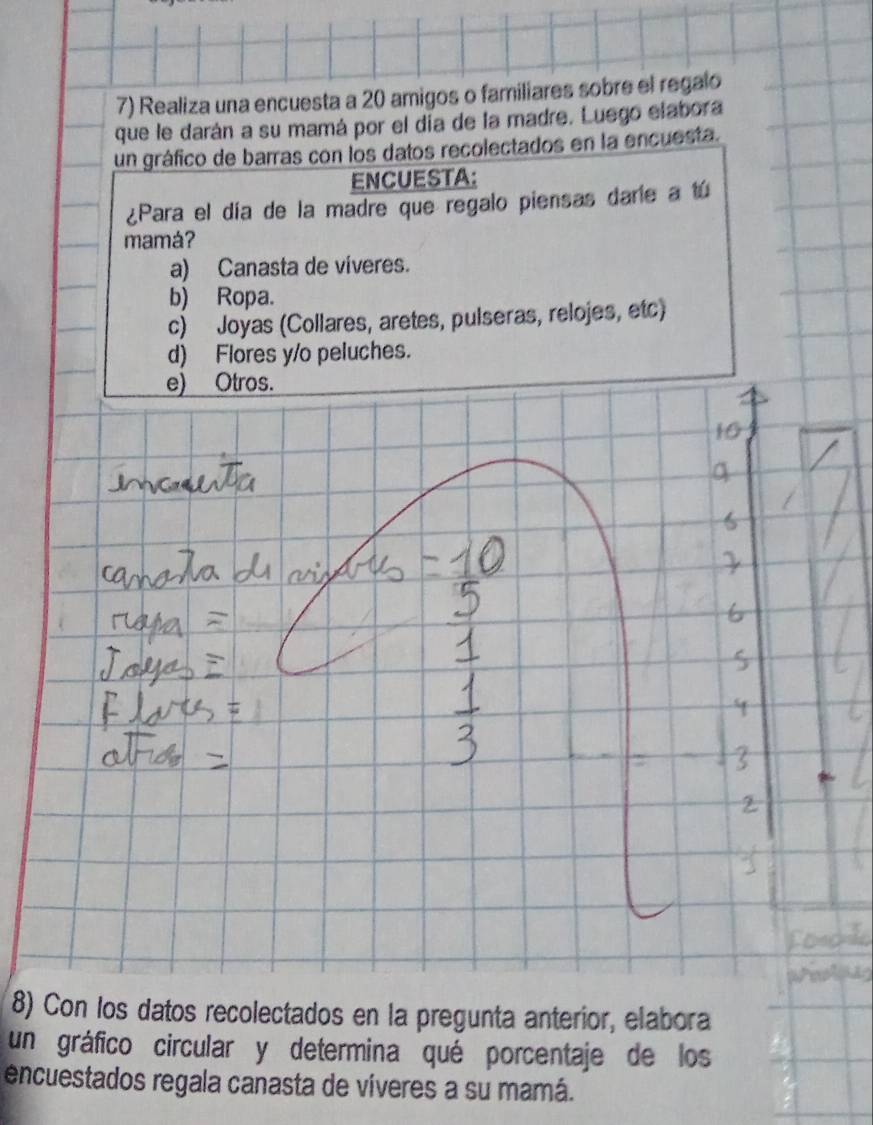 7) Realiza una encuesta a 20 amigos o familiares sobre el regalo
que le darán a su mamá por el día de la madre. Luego elabora
un gráfico de barras con los datos recolectados en la encuesta.
ENCUESTA:
¿Para el día de la madre que regalo piensas darle a tú
mamá?
a) Canasta de víveres.
b) Ropa.
c) Joyas (Collares, aretes, pulseras, relojes, etc)
d) Flores y/o peluches.
e) Otros.
canasta de víveres = 10
ropa = 5
Joyas = 1
Flores = 1
otros = 3
10
9
7
6
5
4
3
2
8) Con los datos recolectados en la pregunta anterior, elabora
un gráfico circular y determina qué porcentaje de los
encuestados regala canasta de víveres a su mamá.